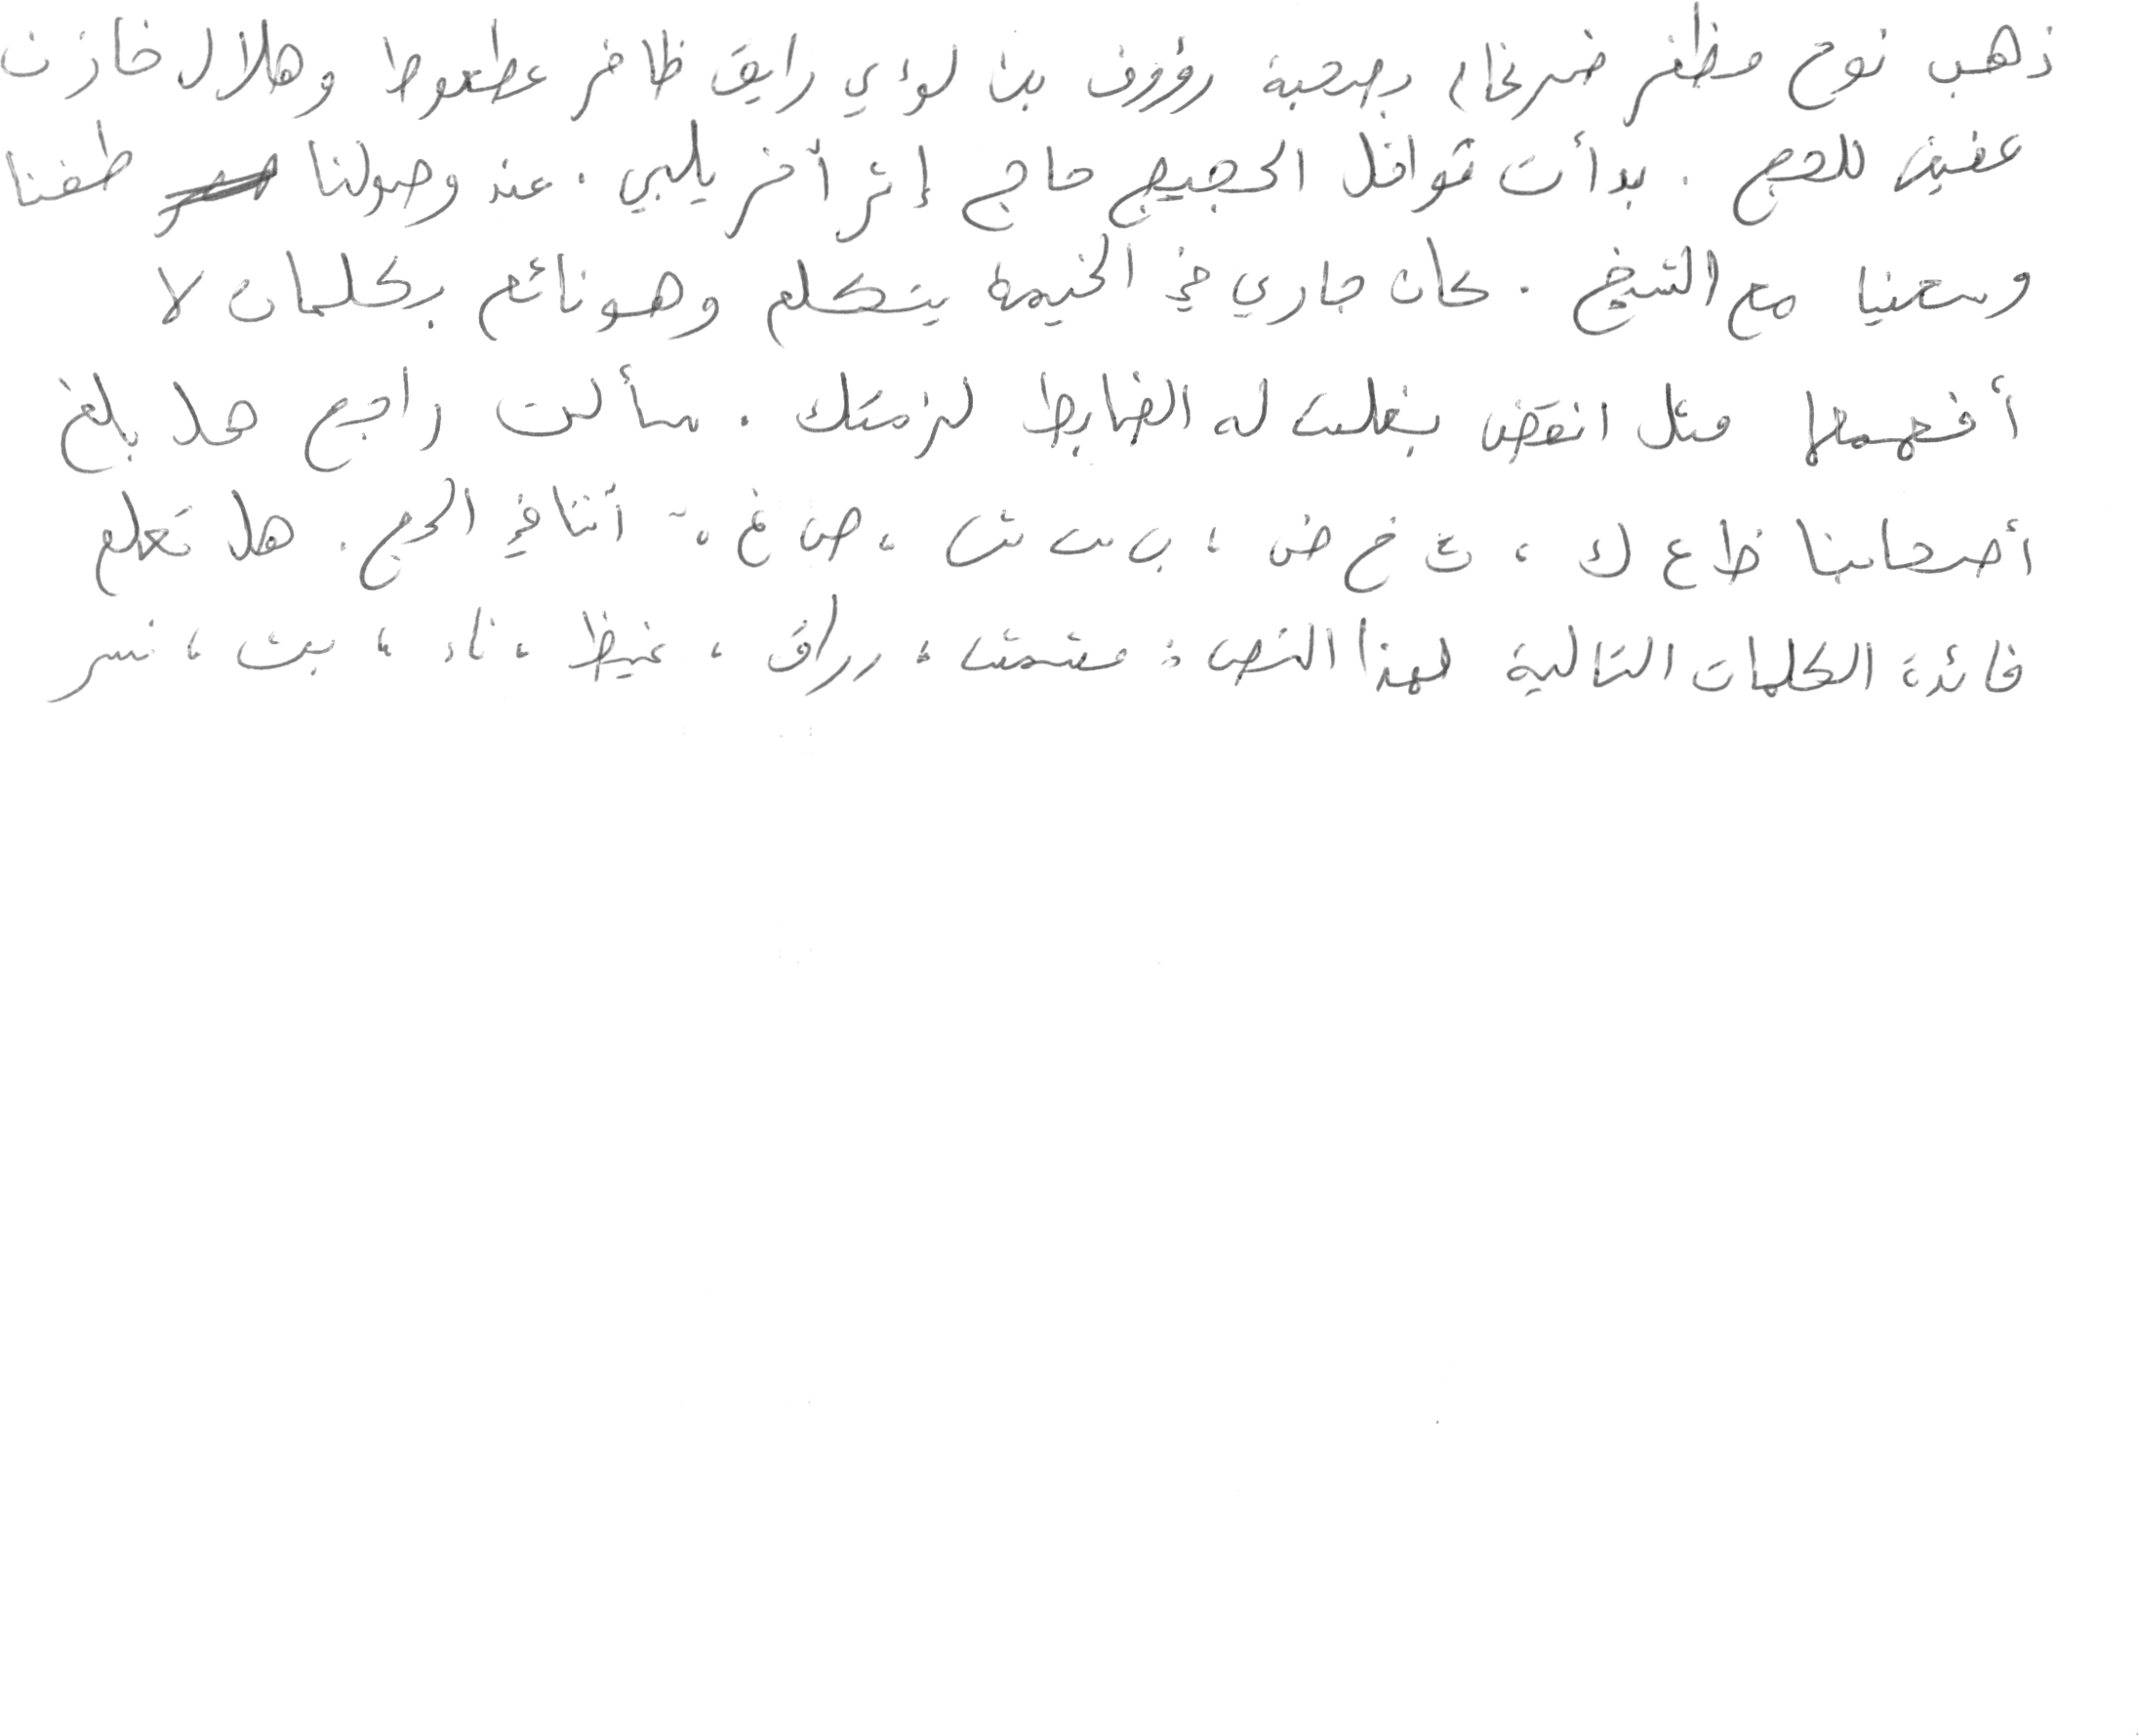 ذهب نوح مظفر ضرغام بصحبة رؤوف بن لؤي رايق ظافر عطعوط وهلال خازن
عفيف للحج . بدأت قوافل الحجيج حاج إثر آخر يلبي . عند وصولنا طفنا
وسعينا مع الشيخ . كان جاري في الخيمة يتكلم وهو نائم بكلمات لا
أفهمها مثل انقض بغلت له الضابط لزمتك . سألت راجح هل بلغ
أصحابنا ظ ع ك ، ث خ ض ، ب س ش ، ص غ ، ~ أتنا في الحج . هل تعلم
فائدة الكلمات التالية لهذا النص : مشمش ، رراق ، غيظ ، ناء ، بث ، نسر